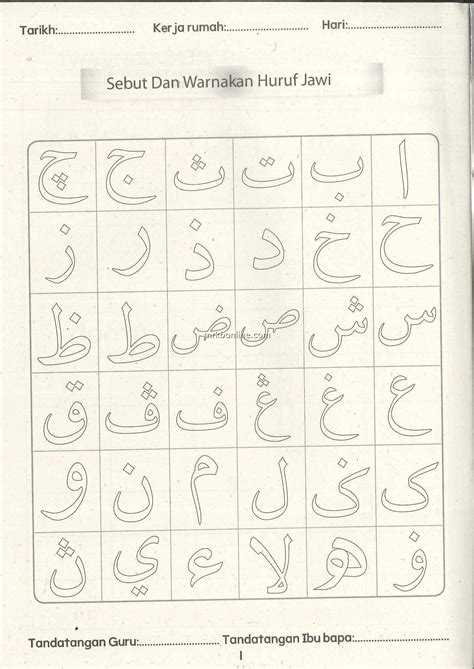 Tarikh:........................ Kerja rumah:........................ Hari:........................
Sebut Dan Warnakan Huruf Jawi
ا ب ت ث ج چ
ح خ د ذ ر ز
س ش ص ض ط ظ
mrkbonline.com
ع غ ڠ ف ڤ ق
ک ݢ ل م ن و
ۏ ه لا ء ي ڽ
Tandatangan Guru:........................ Tandatangan Ibu bapa:........................
1